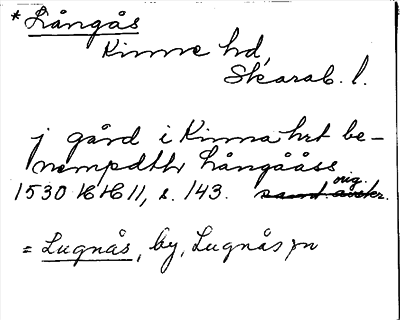 *Långås
Kinne hd,
Skarab. l.
j gård i Kinna hrt be-
nempdth Långååss
1530 HH 11, s. 143. orig.
= Lugnås, by, Lugnås sn